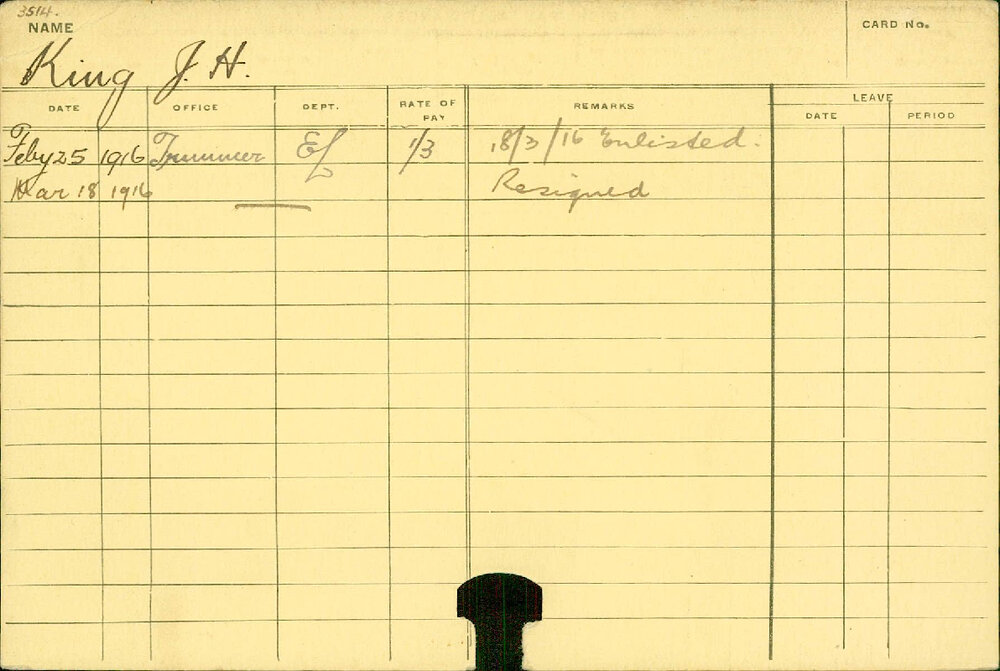 3514.
NAME
CARD No.
King J. H.
DATE OFFICE DEPT. RATE OF PAY REMARKS LEAVE
DATE PERIOD
Feby 25 1916 Trimmer EL 1/3 18/3/16 Enlisted.
Mar 18 1916 Resigned